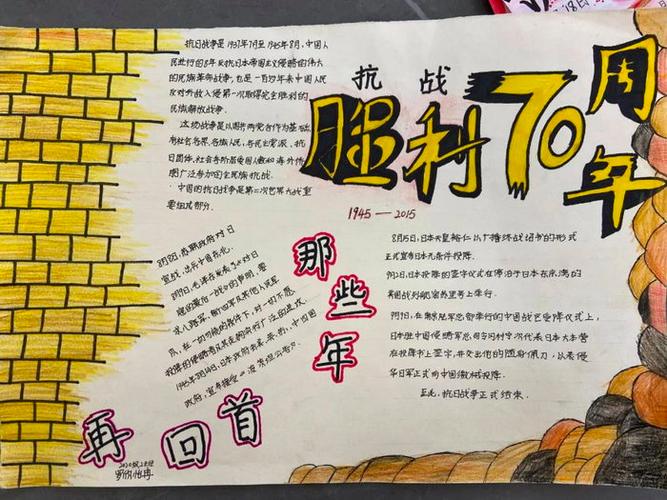 抗战
胜利70周年
1945—2015
抗日战争是1937年7月至1945年8月，中国人
民进行的8年反抗日本帝国主义侵略的伟大
的民族革命战争，也是一百多年来中国人民
反对外敌入侵第一次取得完全胜利的
民族解放战争。
这场战争是以国共两党合作为基础，
有社会各界、各族人民、各民主党派、抗
日团体、社会各阶层爱国人士和海外侨
胞广泛参加的全民族抗战。
中国的抗日战争是第二次世界大战重
要组成部分。
8月8日，苏联政府对日
宣战，出兵中国东北。
8月9日，毛泽东发表了《对日
寇的最后一战》的声明，要
求八路军、新四军及其他人民军
队，在一切可能的条件下，对一切不愿
投降的侵略者及其走狗实行广泛的进攻
1945年8月14日，日本政府照会美、英、苏、中四国
政府，宣布接受《波茨坦公告》。
那些年
再回首
8月15日，日本天皇裕仁以广播终战诏书的形式
正式宣布日本无条件投降。
9月2日，日本投降的签字仪式在停泊于日本东京湾的
美国战列舰密苏里号上举行。
9月9日，在南京陆军总部举行的中国战区受降仪式上，
日本驻中国侵略军总司令冈村宁次代表日本大本营
在投降书上签字，并交出他的随身佩刀，以表侵
华日军正式向中国缴械投降。
至此，抗日战争正式结束。